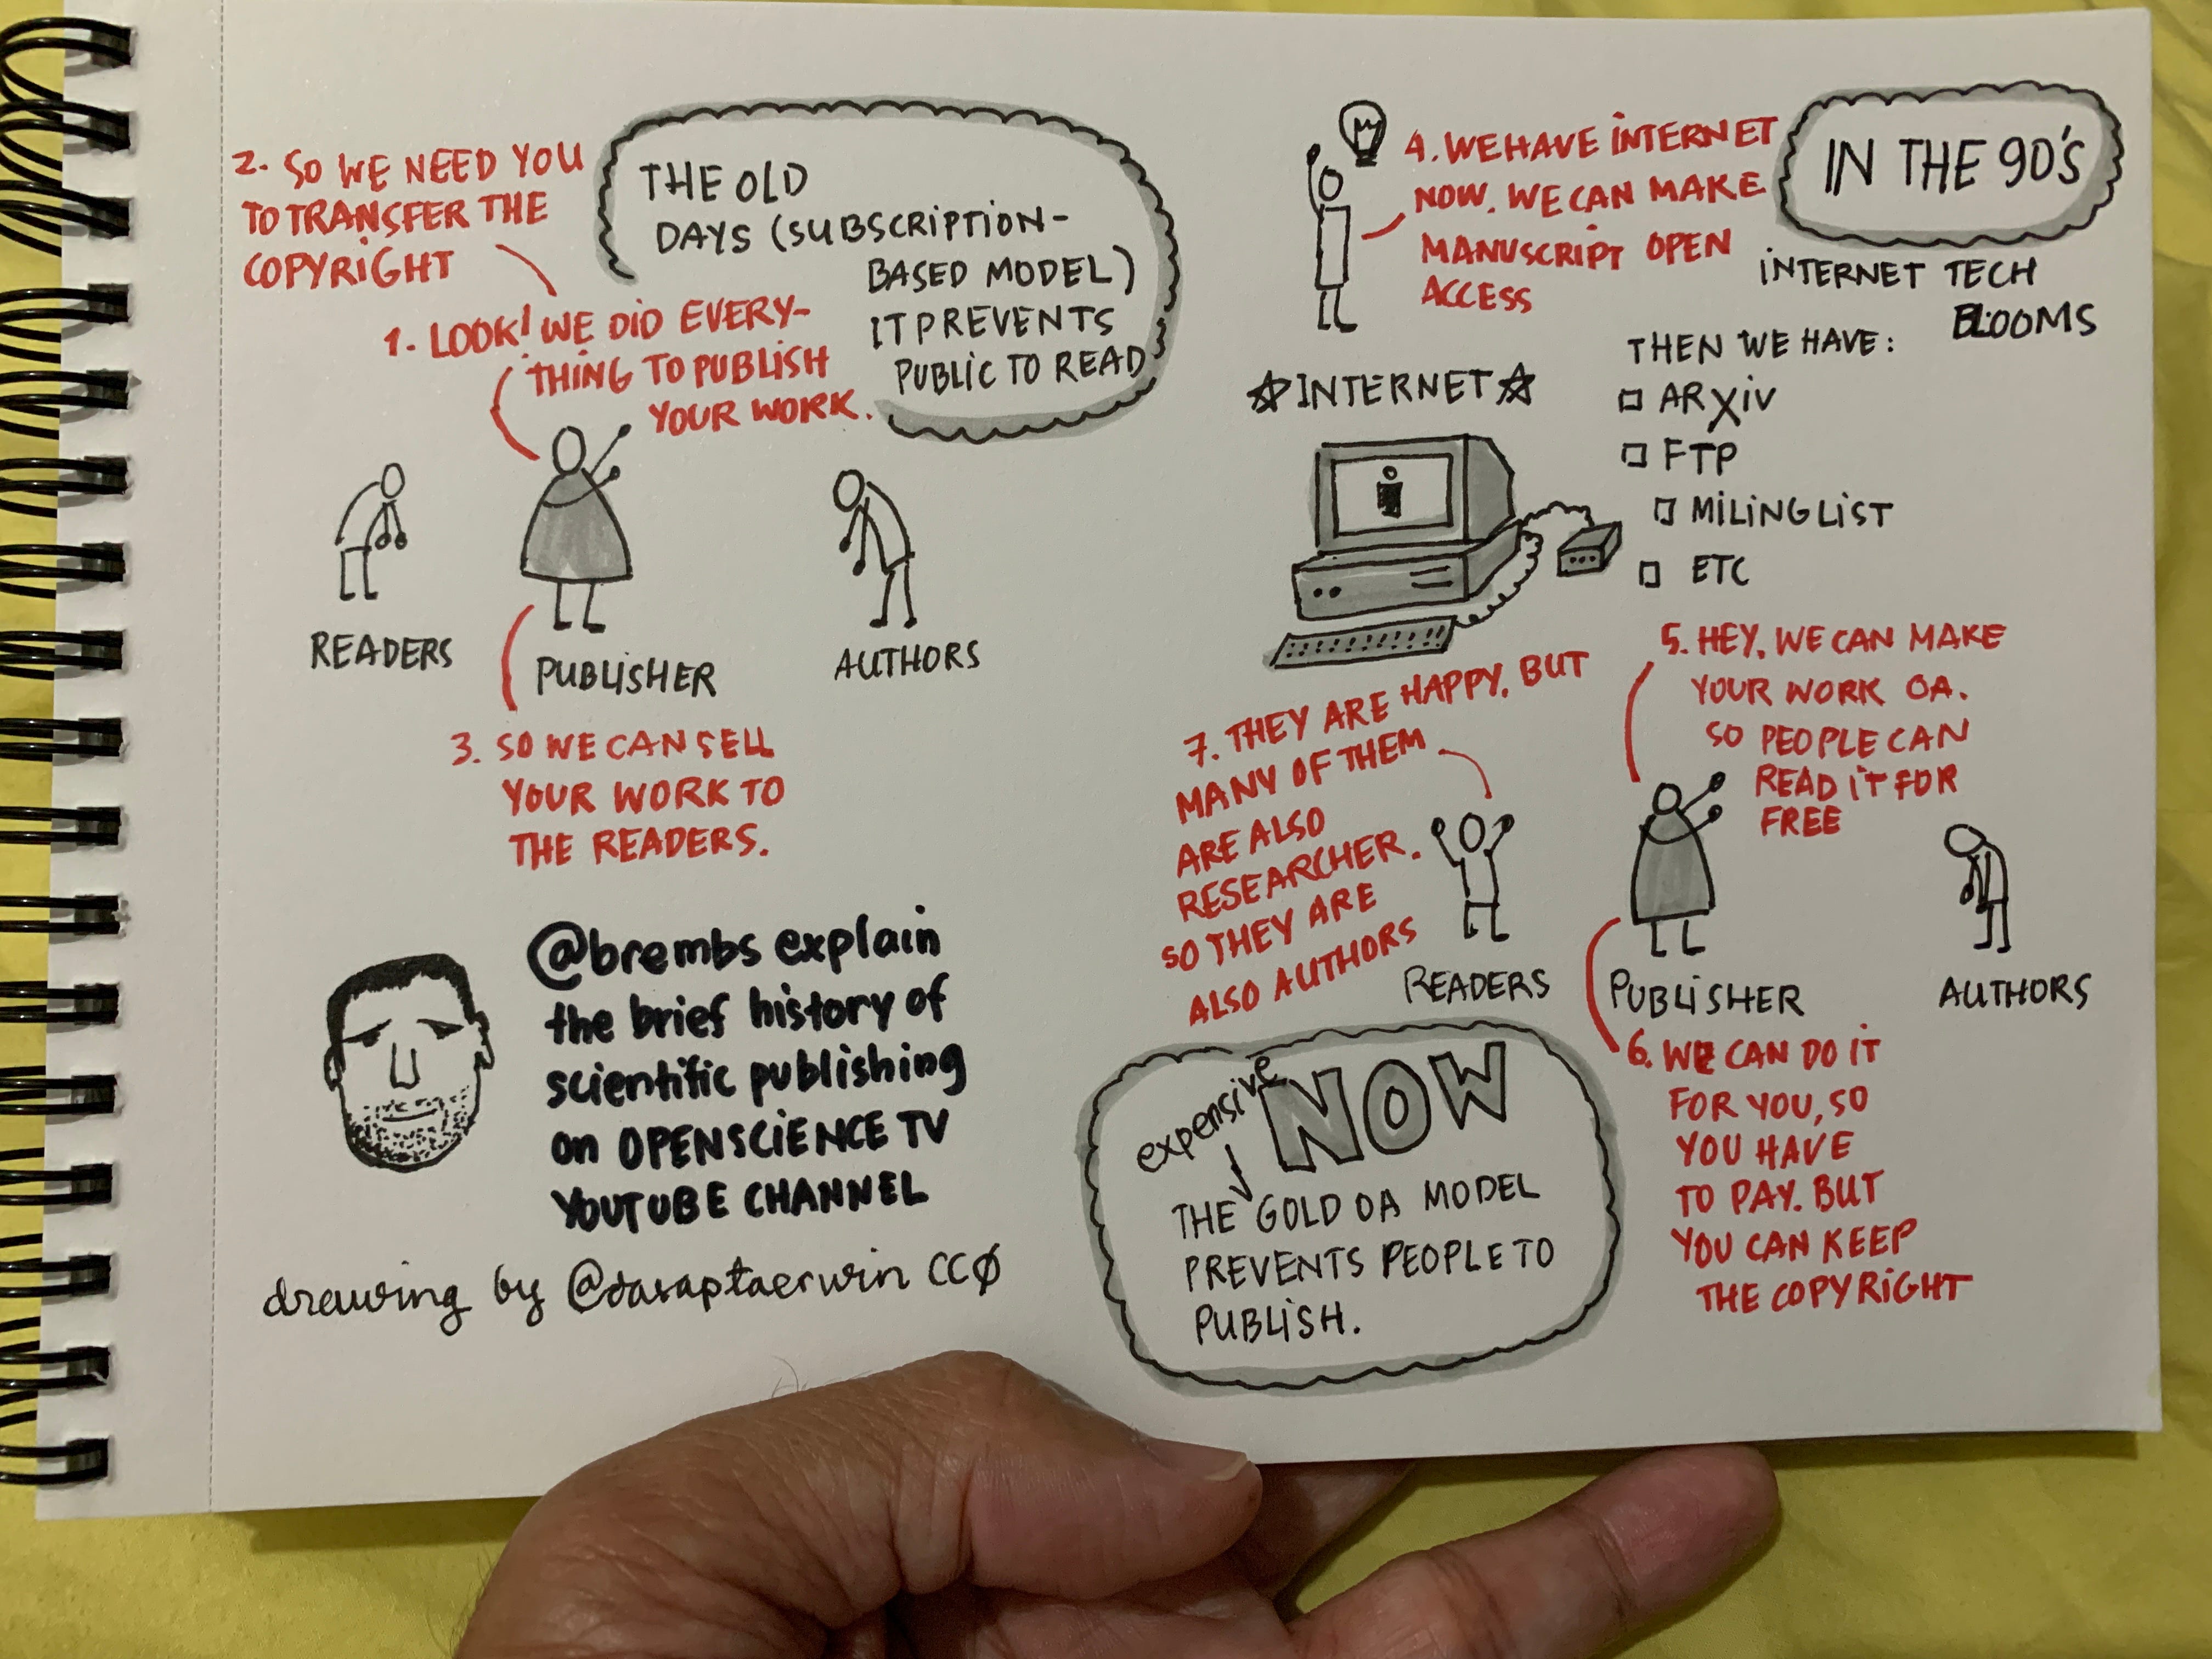 THE OLD
DAYS (SUBSCRIPTION-
BASED MODEL)
IT PREVENTS
PUBLIC TO READ
1. LOOK! WE DID EVERY-
THING TO PUBLISH
YOUR WORK.
2. SO WE NEED YOU
TO TRANSFER THE
COPYRIGHT
READERS
PUBLISHER
AUTHORS
3. SO WE CAN SELL
YOUR WORK TO
THE READERS.
@brembs explain
the brief history of
scientific publishing
on OPENSCIENCE TV
YOUTUBE CHANNEL
drawing by @dasaptaerwin CC∅
IN THE 90'S
INTERNET TECH
BLOOMS
4. WE HAVE INTERNET
NOW. WE CAN MAKE
MANUSCRIPT OPEN
ACCESS
☆INTERNET☆
THEN WE HAVE:
□ ARXIV
□ FTP
□ MILINGLIST
□ ETC
5. HEY, WE CAN MAKE
YOUR WORK OA.
SO PEOPLE CAN
READ IT FOR
FREE
READERS
PUBLISHER
AUTHORS
6. WE CAN DO IT
FOR YOU, SO
YOU HAVE
TO PAY. BUT
YOU CAN KEEP
THE COPYRIGHT
7. THEY ARE HAPPY. BUT
MANY OF THEM
ARE ALSO
RESEARCHER.
SO THEY ARE
ALSO AUTHORS
NOW
expensive
THE GOLD OA MODEL
PREVENTS PEOPLE TO
PUBLISH.